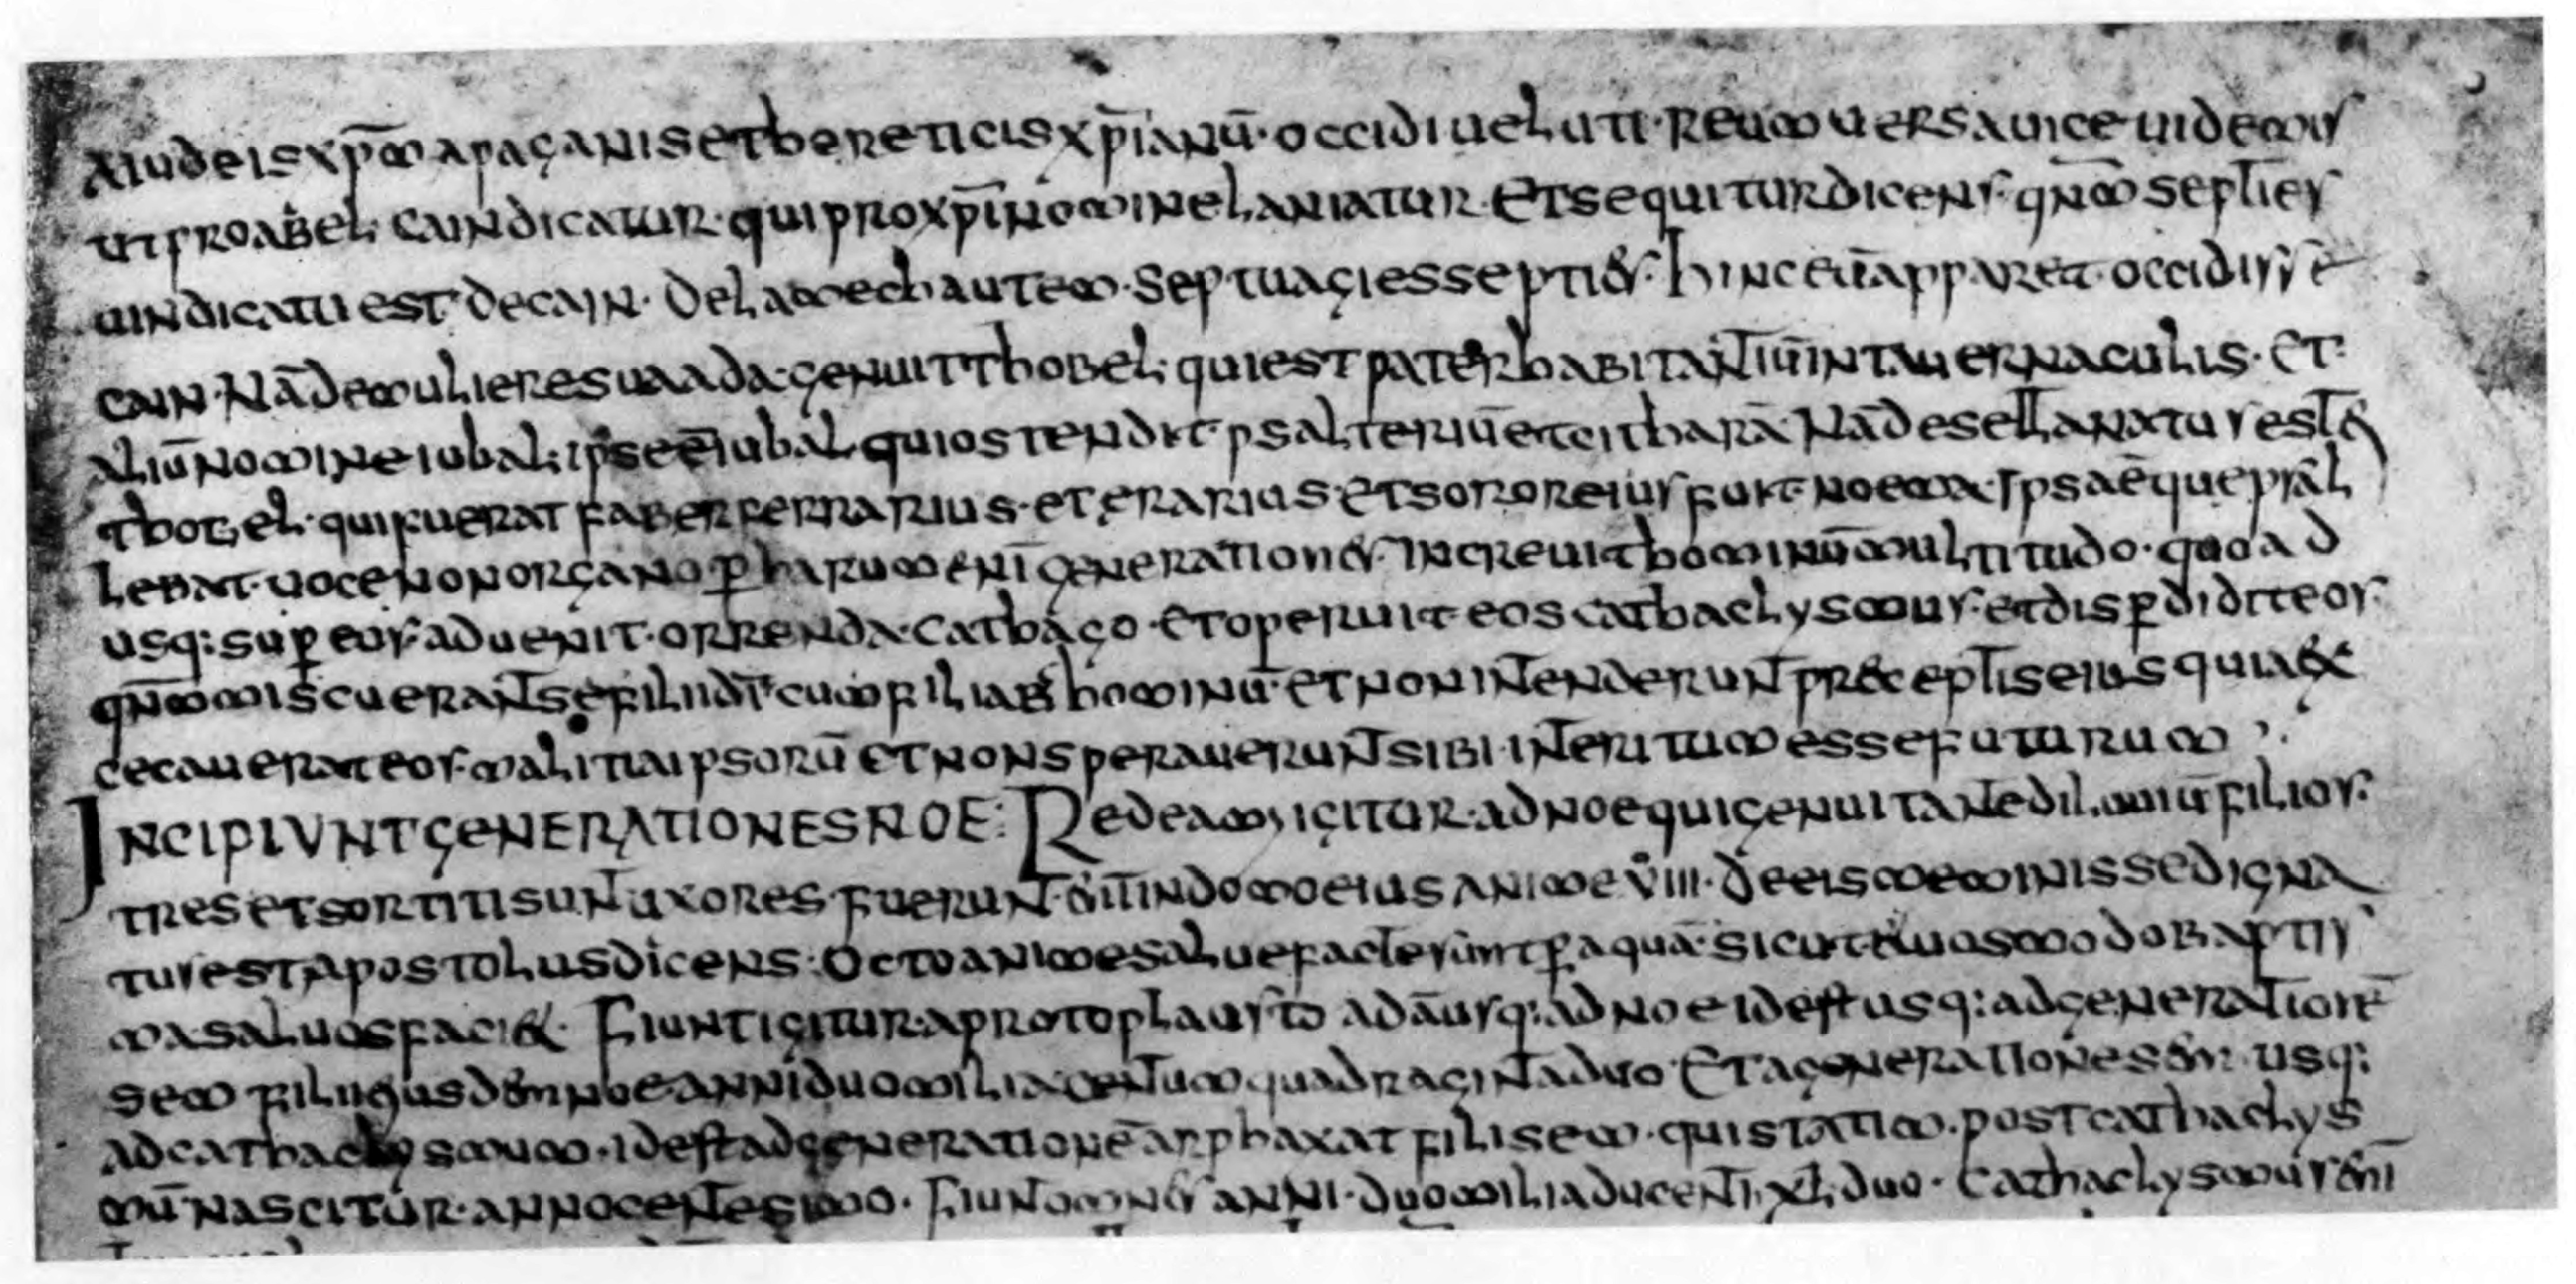 a iudeis xp̄m a paganis et hereticis xp̄ianū · occidi uel uti · reum uersa uice uidemus
ut pro abel · cain dicatur · qui pro xp̄i nomine laniatur · Et sequitur dicens · qnm̄ septies
uindicatu est de cain · De lamech autem · septuagies septies · hinc etiā apparet · occidisse
cain · Nā de muliere sua ada · genuit thobel · qui est pater habitantiū in tauernaculis · Et ·
aliū nomine iubal · ipse ē iubal qui ostendit · psalteriū et citharā Nā de sella natus est &
thobel · qui fuerat faber ferrarius · et erarius · Et soror eius fuit · noema · Ipsa ē que psal
lebat · uoce non organo p̱ harum eni generationes · increuit hominū multitudo · quo ad
usq: sup̱ eos · aduenit · orrenda · cathago · Et operuit · eos cathaclysmus · et disp̱didit eos ·
qnm̄ miscuerant se filii dī cum filiab hominū · Et non intenderunt preceptis eius quia ex
cecauerat eos · malitia ipsorū et non sperauerunt sibi interitum esse futurum
INCIPIVNT GENERATIONES NOE: Redeamus igitur · ad noe qui genuit ante diluuiū filios ·
tres et sortiti sunt uxores fuerunt · om̄ī in domo eius anime VIII · de eis meminisse digna
tus est apostolus dicens · Octo anime salue facte sunt p̱ aquā · sicut et uos modo baptis
ma saluos faciet · Fiunt igitur · a protoplausto adā usq: ad noe id est usq: ad generationē
sem anni duo milia centum quadraginta duo · Et a generationes usq:
ad cathaclysmum · id est ad generationē arphaxat fili sem · qui statim · post cathaclys
mū nascitur · anno centesimo · Fiunt omnes anni · duo milia ducenti xl duo · Cathaclysmus